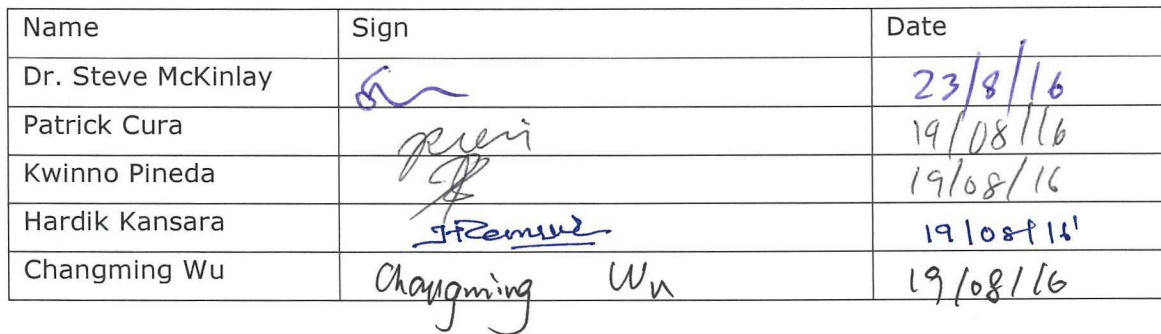 Name Sign Date
Dr. Steve McKinlay 23/8/16
Patrick Cura 19/08/16
Kwinno Pineda 19/08/16
Hardik Kansara 19/08/16
Changming Wu Changming Wu 19/08/16